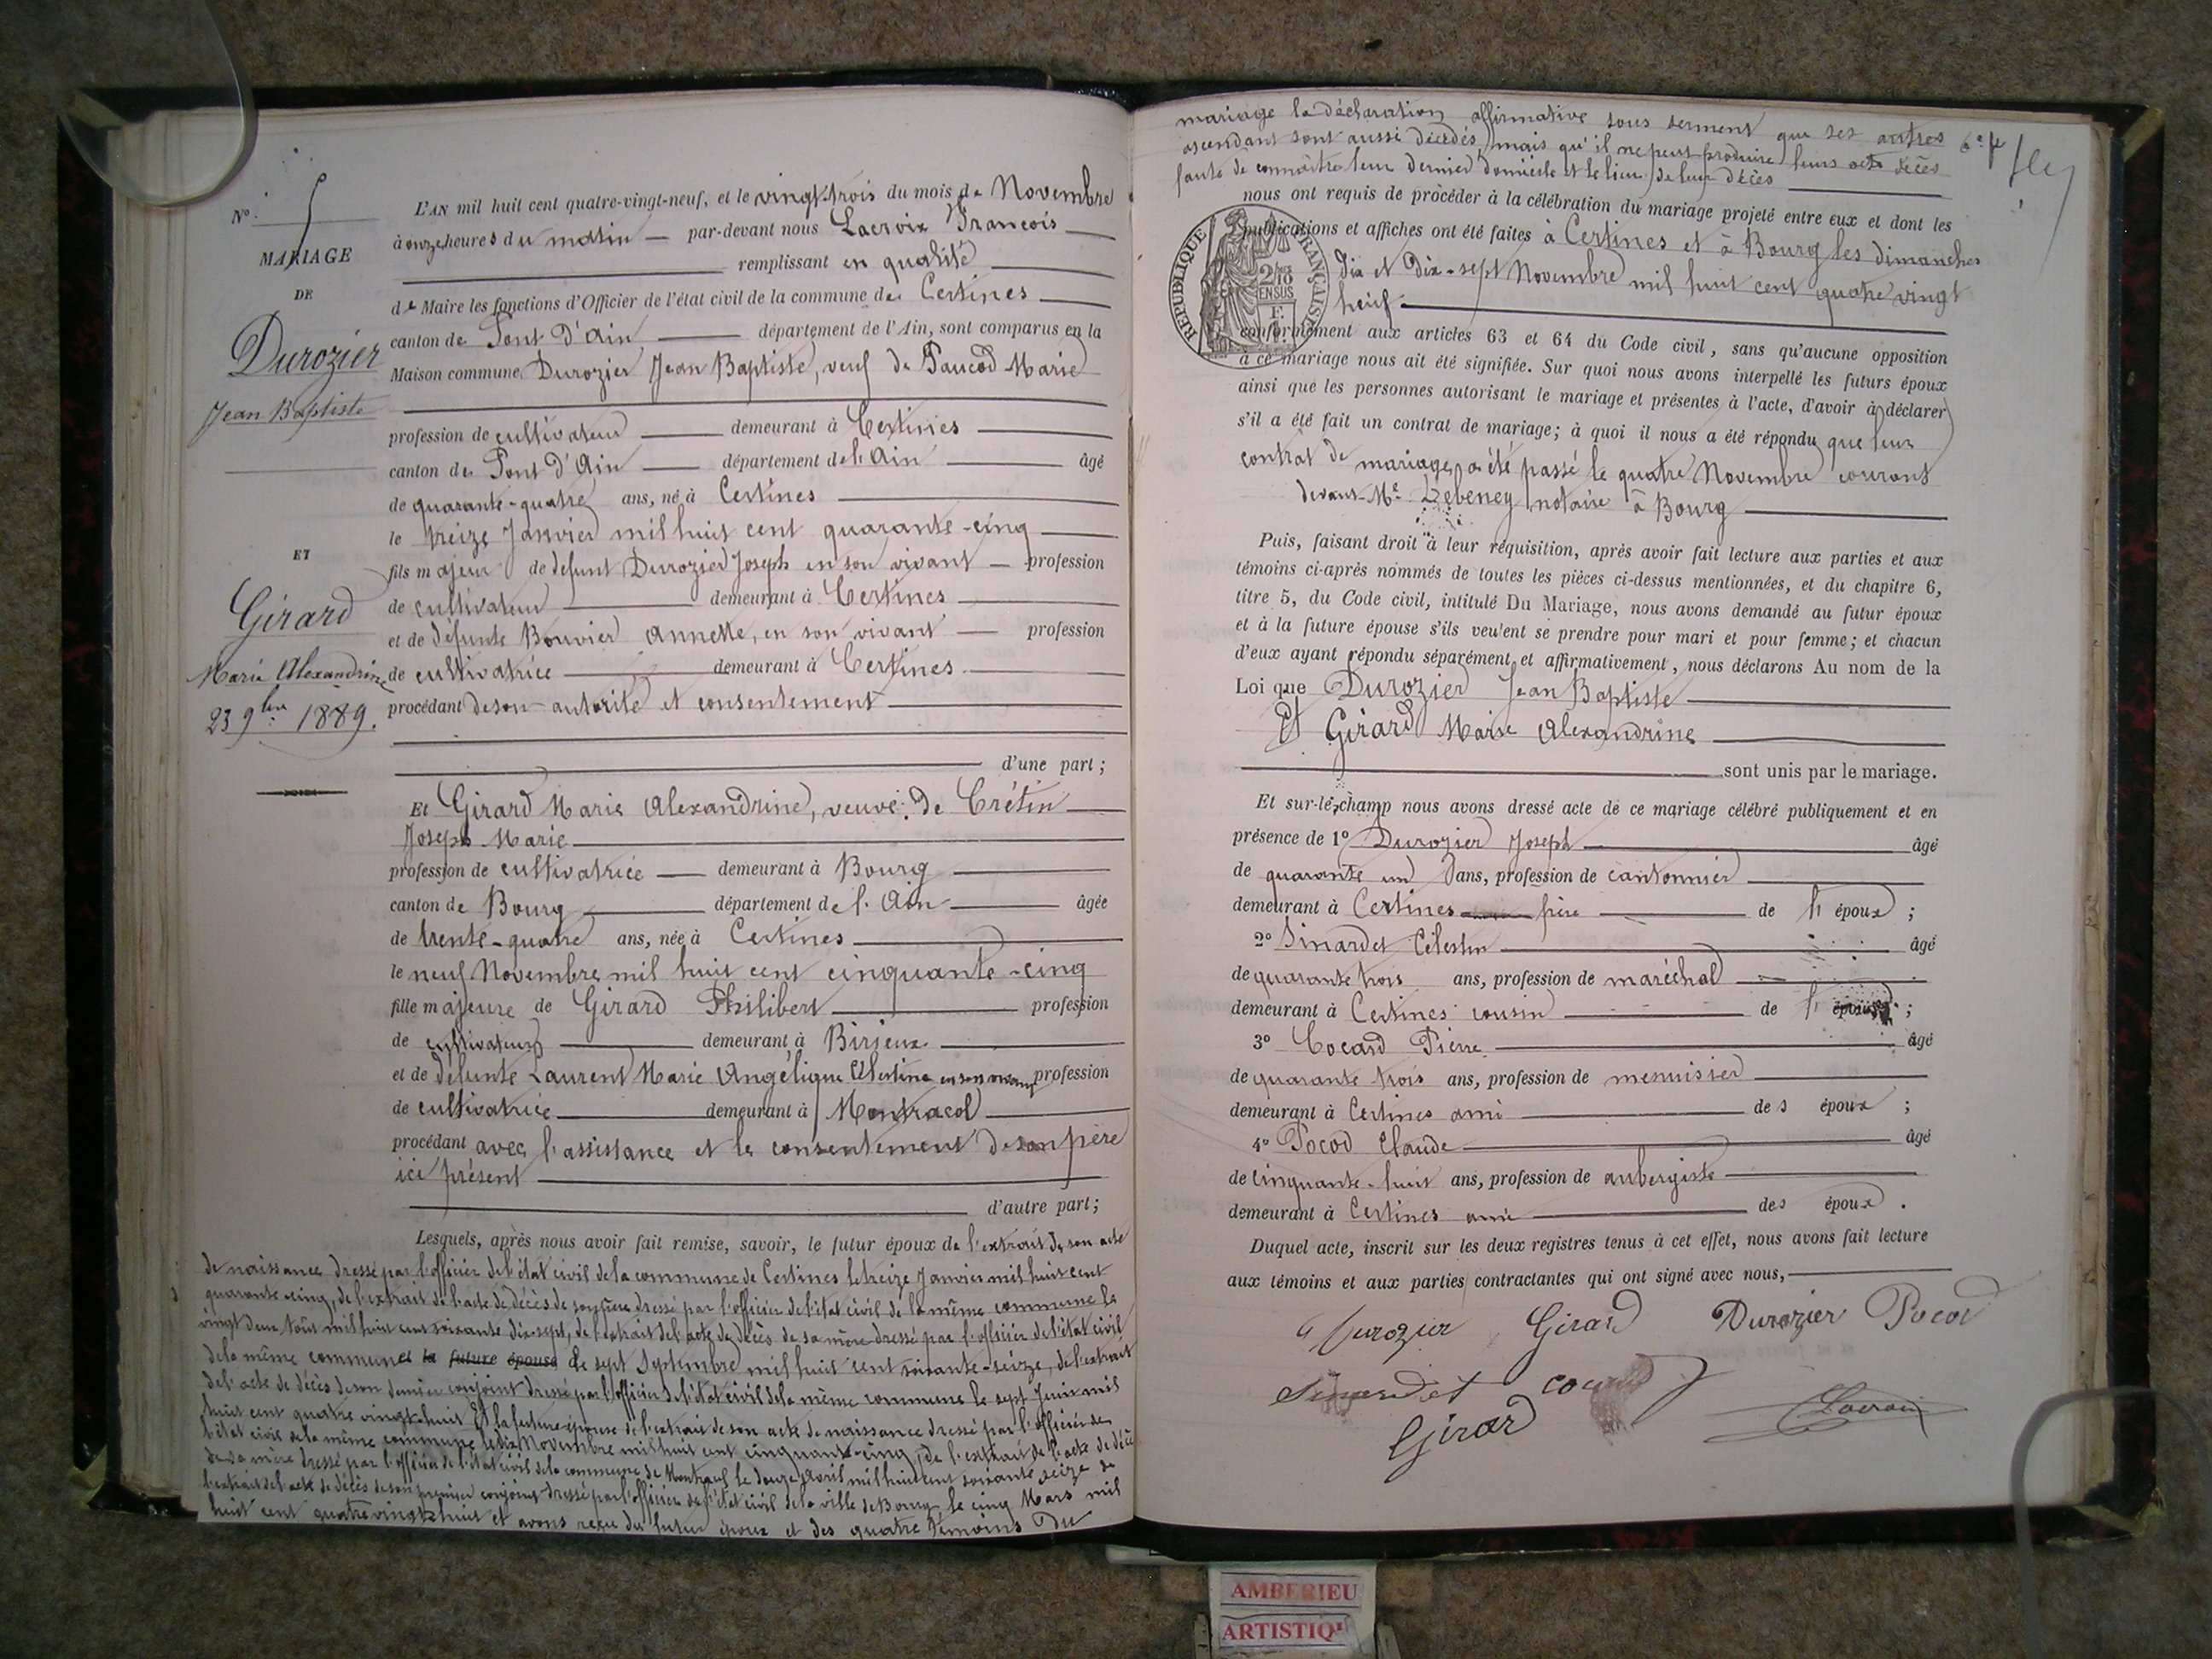 N°
MARIAGE
DE
Durozier
Jean Baptiste
ET
Girard
Marie Alexandrine
23 9bre 1889.
L'AN mil huit cent quatre-vingt-neuf, et le vingt trois du mois de Novembre
à onze heures du matin par-devant nous Lacroix François
remplissant en qualité
de Maire les fonctions d'Officier de l'état civil de la commune de Certines
canton de Pont d'Ain département de l'Ain, sont comparus en la
Maison commune, Durozier Jean Baptiste, veuf de Paucod Marie
profession de cultivateur demeurant à Certines
canton de Pont d'Ain département de l'Ain âgé
de quarante-quatre ans, né à Certines
le treize Janvier mil huit cent quarante-cinq
fils majeur de defunt Durozier Joseph en son vivant profession
de cultivateur demeurant à Certines
et de défunte Bouvier Annette, en son vivant profession
de cultivatrice demeurant à Certines
procédant de son autorité et consentement
d'une part ;
Et Girard Marie Alexandrine, veuve de Crétin
Joseph Marie
profession de cultivatrice demeurant à Bourg
canton de Bourg département de l'Ain âgée
de trente-quatre ans, née à Certines
le neuf Novembre mil huit cent cinquante-cinq
fille majeure de Girard Philibert profession
de cultivateur demeurant à Birieux
et de défunte Laurent Marie Angélique Albertine en son vivant profession
de cultivatrice demeurant à Montracol
procédant avec l'assistance et le consentement de son père
ici présent
d'autre part ;
Lesquels, après nous avoir fait remise, savoir, le futur époux de l'extrait de son acte
de naissance dressé par l'officier de l'état civil de la commune de Certines le treize Janvier mil huit cent
quarante-cinq, de l'extrait de l'acte de décès de son père dressé par l'officier de l'état civil de la même commune le
vingt deux Août mil huit cent soixante dix-sept, de l'extrait de l'acte de décès de sa mère dressé par l'officier de l'état civil
de la même commune et la future épouse le sept Septembre mil huit cent soixante-seize, de l'extrait
de l'acte de décès de son dernier conjoint dressé par l'officier de l'état civil de la même commune le sept Juin mil
huit cent quatre vingt-huit Et la future épouse de l'extrait de son acte de naissance dressé par l'officier de
l'état civil de la même commune le dix Novembre mil huit cent cinquante-cinq, de l'extrait de l'acte de décès
de sa mère dressé par l'officier de l'état civil de la commune de Montracol le douze Avril mil huit cent soixante seize de
l'extrait de l'acte de décès de son premier conjoint dressé par l'officier de l'état civil de la ville de Bourg le cinq Mars mil
huit cent quatre vingt-huit et avons reçu du futur époux et des quatre témoins du
mariage la déclaration affirmative sous serment que ses autres
ascendant sont aussi décédés, mais qu'il ne peut produire leurs acte décès
faute de connaître leur dernier domicile et le lieu de leur décès
nous ont requis de procéder à la célébration du mariage projeté entre eux et dont les
publications et affiches ont été faites à Certines et à Bourg les dimanches
dix et dix-sept Novembre mil huit cent quatre vingt
neuf
RÉPUBLIQUE FRANÇAISE
2/10 EN SUS
conformément aux articles 63 et 64 du Code civil, sans qu'aucune opposition
à ce mariage nous ait été signifiée. Sur quoi nous avons interpellé les futurs époux
ainsi que les personnes autorisant le mariage et présentes à l'acte, d'avoir à déclarer
s'il a été fait un contrat de mariage ; à quoi il nous a été répondu que leur
contrat de mariage a été passé le quatre Novembre courant
devant Me Debeney notaire à Bourg
Puis, faisant droit à leur réquisition, après avoir fait lecture aux parties et aux
témoins ci-après nommés de toutes les pièces ci-dessus mentionnées, et du chapitre 6,
titre 5, du Code civil, intitulé Du Mariage, nous avons demandé au futur époux
et à la future épouse s'ils veulent se prendre pour mari et pour femme ; et chacun
d'eux ayant répondu séparément et affirmativement, nous déclarons Au nom de la
Loi que Durozier Jean Baptiste
Et Girard Marie Alexandrine
sont unis par le mariage.
Et sur-le-champ nous avons dressé acte de ce mariage célébré publiquement et en
présence de 1° Durozier Joseph âgé
de quarante un ans, profession de cantonnier
demeurant à Certines frère de l' époux ;
2° Sinardet Célestin âgé
de quarante trois ans, profession de maréchal
demeurant à Certines cousin de l' époux ;
3° Cocard Pierre âgé
de quarante trois ans, profession de menuisier
demeurant à Certines ami des époux ;
4° Pocod Claude âgé
de cinquante-huit ans, profession de aubergiste
demeurant à Certines ami des époux.
Duquel acte, inscrit sur les deux registres tenus à cet effet, nous avons fait lecture
aux témoins et aux parties contractantes qui ont signé avec nous,
Durozier Girard Durozier Pocod
Sinardet Cocard
Girard Lacroix
AMBERIEU
ARTISTIQ